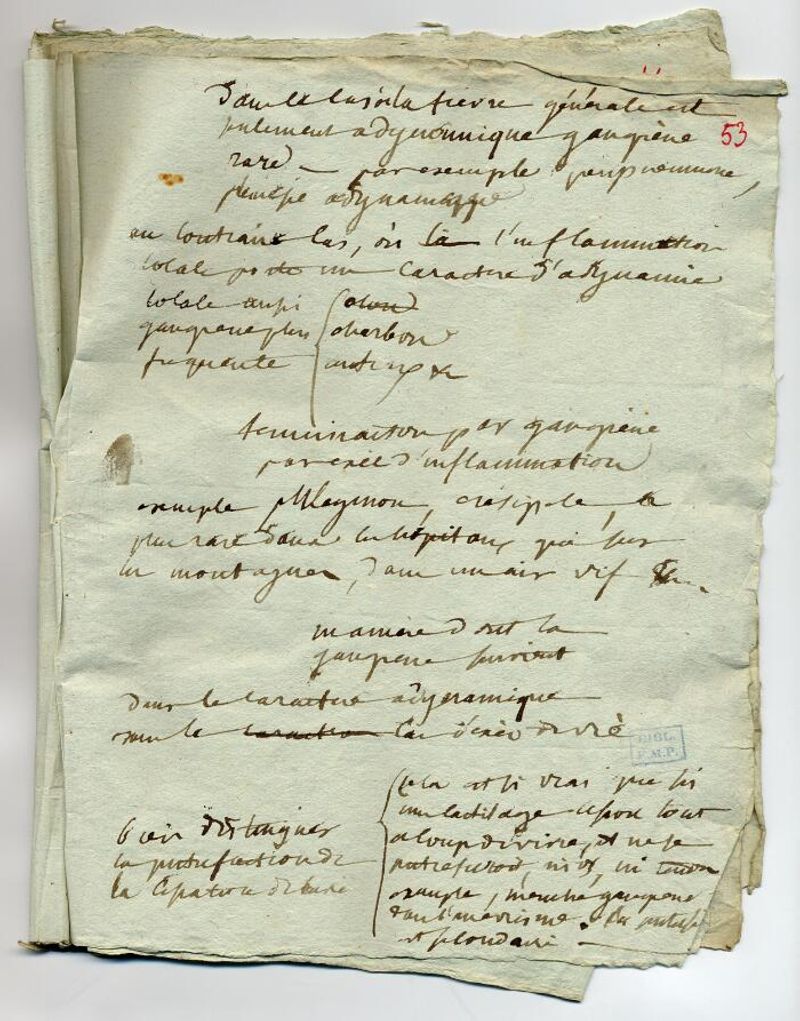 53
Dans le cas où la fievre générale est
seulement adynamique gangrène
rare — par exemple peripneumonie,
pleuresie adynamique
au contraire cas, où la l'inflammation
locale porte un caractere d'adynamie
locale aussi
gangrene plus
frequente
charbon
anthrax &c
terminaison par gangrène
par excè d'inflammation
exemple phlegmon, eresipele,
plus rare dans les hôpitaux que sur
les montagnes, dans un air vif
maniere dont la
gangrene survient
dans le caractere adynamique
dans le caractere cas d'excè de vie
BIBL.
F.M.P.
bien distinguer
la putrefaction de
la cessation de la vie
cela est si vrai que si
un cartilage cesse tout
a coup de vivre, et ne se
putrefie, ni os, ni tendon
exemple, marche gangrene
dans l'anevrisme. La putrefac
est secondaire —